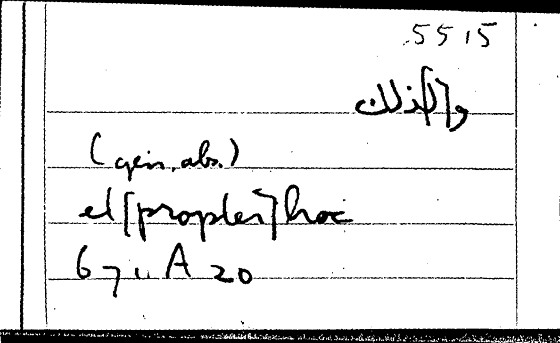 5515
و[ل]ذلك
(gen. abs.)
et [propter] hoc
671 A 20